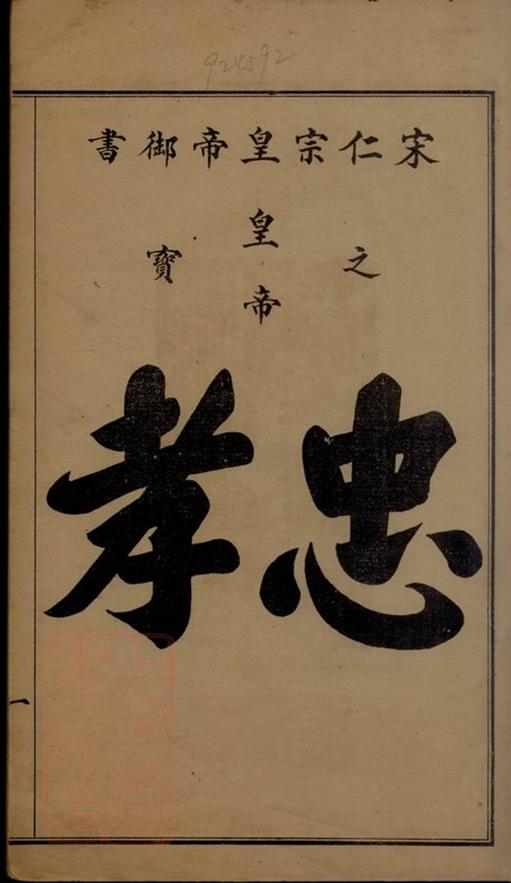 924592
宋仁宗皇帝御書
皇帝之寶
忠孝
一